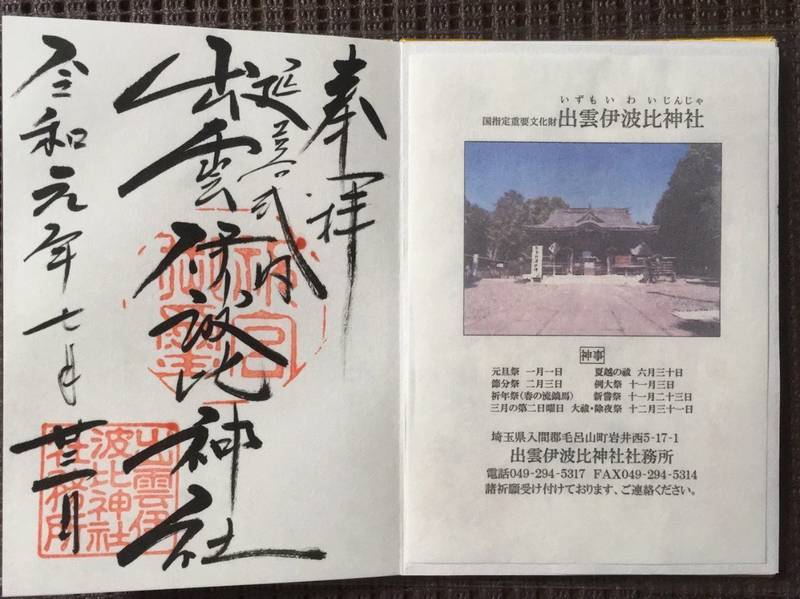 奉拝
延喜式内
出雲伊波比神社
令和元年七月
出雲伊
波比神社
社務所
いずもいわいじんじゃ
国指定重要文化財 出雲伊波比神社
神事
元旦祭 一月一日 夏越の祓 六月三十日
節分祭 二月三日 例大祭 十一月三日
祈年祭(春の流鏑馬) 新嘗祭 十一月二十三日
三月の第二日曜日 大祓・除夜祭 十二月三十一日
埼玉県入間郡毛呂山町岩井西5-17-1
出雲伊波比神社社務所
電話049-294-5317 FAX049-294-5314
諸祈願受け付けております、ご連絡ください。